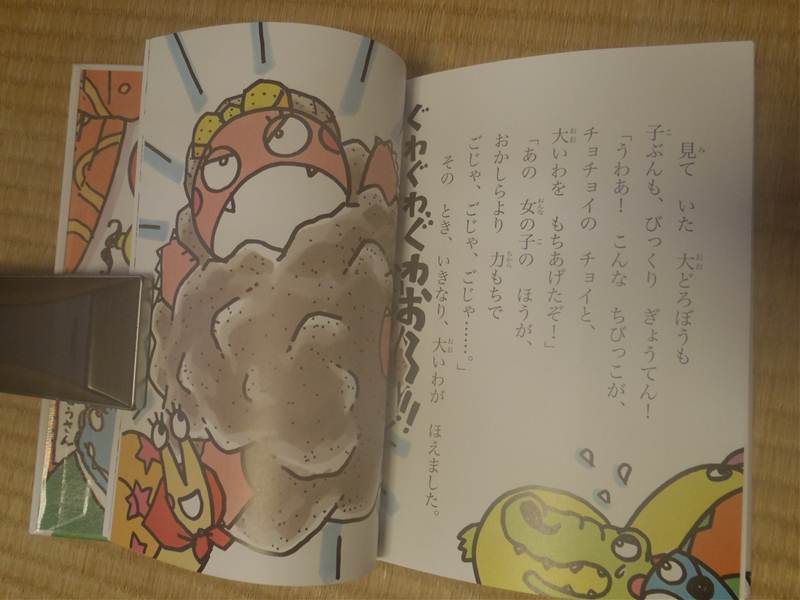 見て いた 大どろぼうも
子ぶんも、びっくり ぎょうてん！
「うわあ！ こんな ちびっこが、
チョチョイの チョイと、
大いわを もちあげたぞ！」
「あの 女の子の ほうが、
おかしらより 力もちで
ごじゃ、ごじゃ、ごじゃ……。」
その とき、いきなり、大いわが ほえました。
ぐわぐわぐわお〜〜!!
うさん